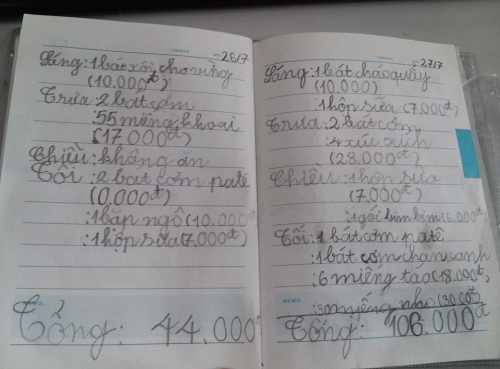 26/7
Sáng: 1 bát xôi cho vừng
(10.000đ)
Trưa: 2 bát cơm
: 55 miếng khoai
(17.000đ)
Chiều: không ăn
Tối: 2 bat cơm patê
(0,000đ)
: 1 bắp ngô (10.000
: 1 hộp sữa (7.000đ)
Tổng: 44.000đ
27/7
Sáng: 1 bát cháo quẩy
(10.000)
1 hộp sữa (7.000đ)
Trưa: 2 bát cơm
: 4 xúc xích
(28.000đ)
Chiều: 1 hộp sữa
(7.000đ)
: 1 gói bim bim (6.000đ)
Tối: 1 bát cơm patê
: 1 bát cơm chan canh
: 6 miếng táo (18.000đ)
MEMO
: 3 miếng nho (30.000đ)
Tổng: 106.000đ